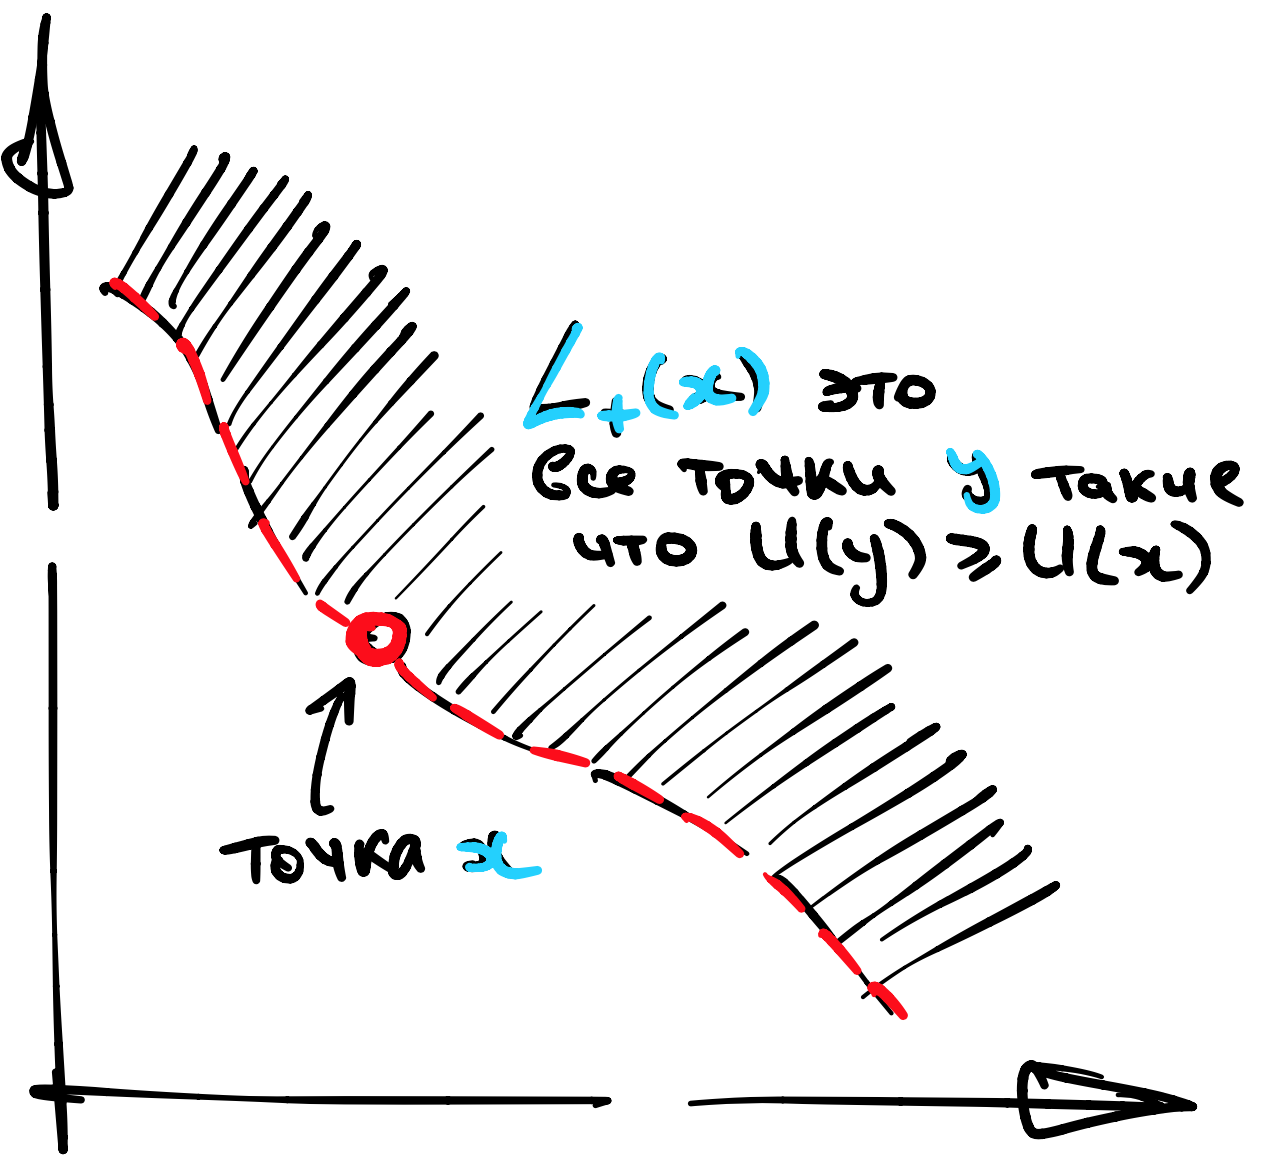 L₊(x) это
все точки y такие
что U(y) ⩾ U(x)
точка x